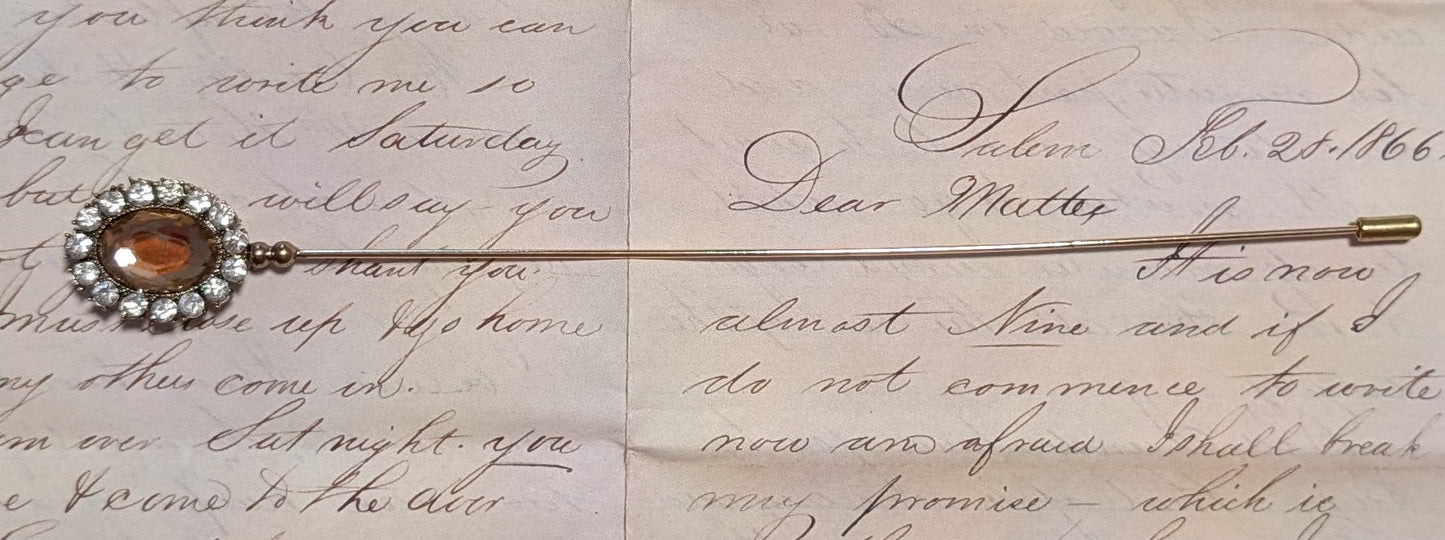 you think you can
ge to write me so
I can get it Saturday
but will say - you
shant you.
up & go home
ny others come in.
m over Sat night. you
e & come to the door
Salem Feb. 28. 1866.
Dear Matte
It is now
almost Nine and if I
do not commence to write
now am afraid I shall break
my promise - which is